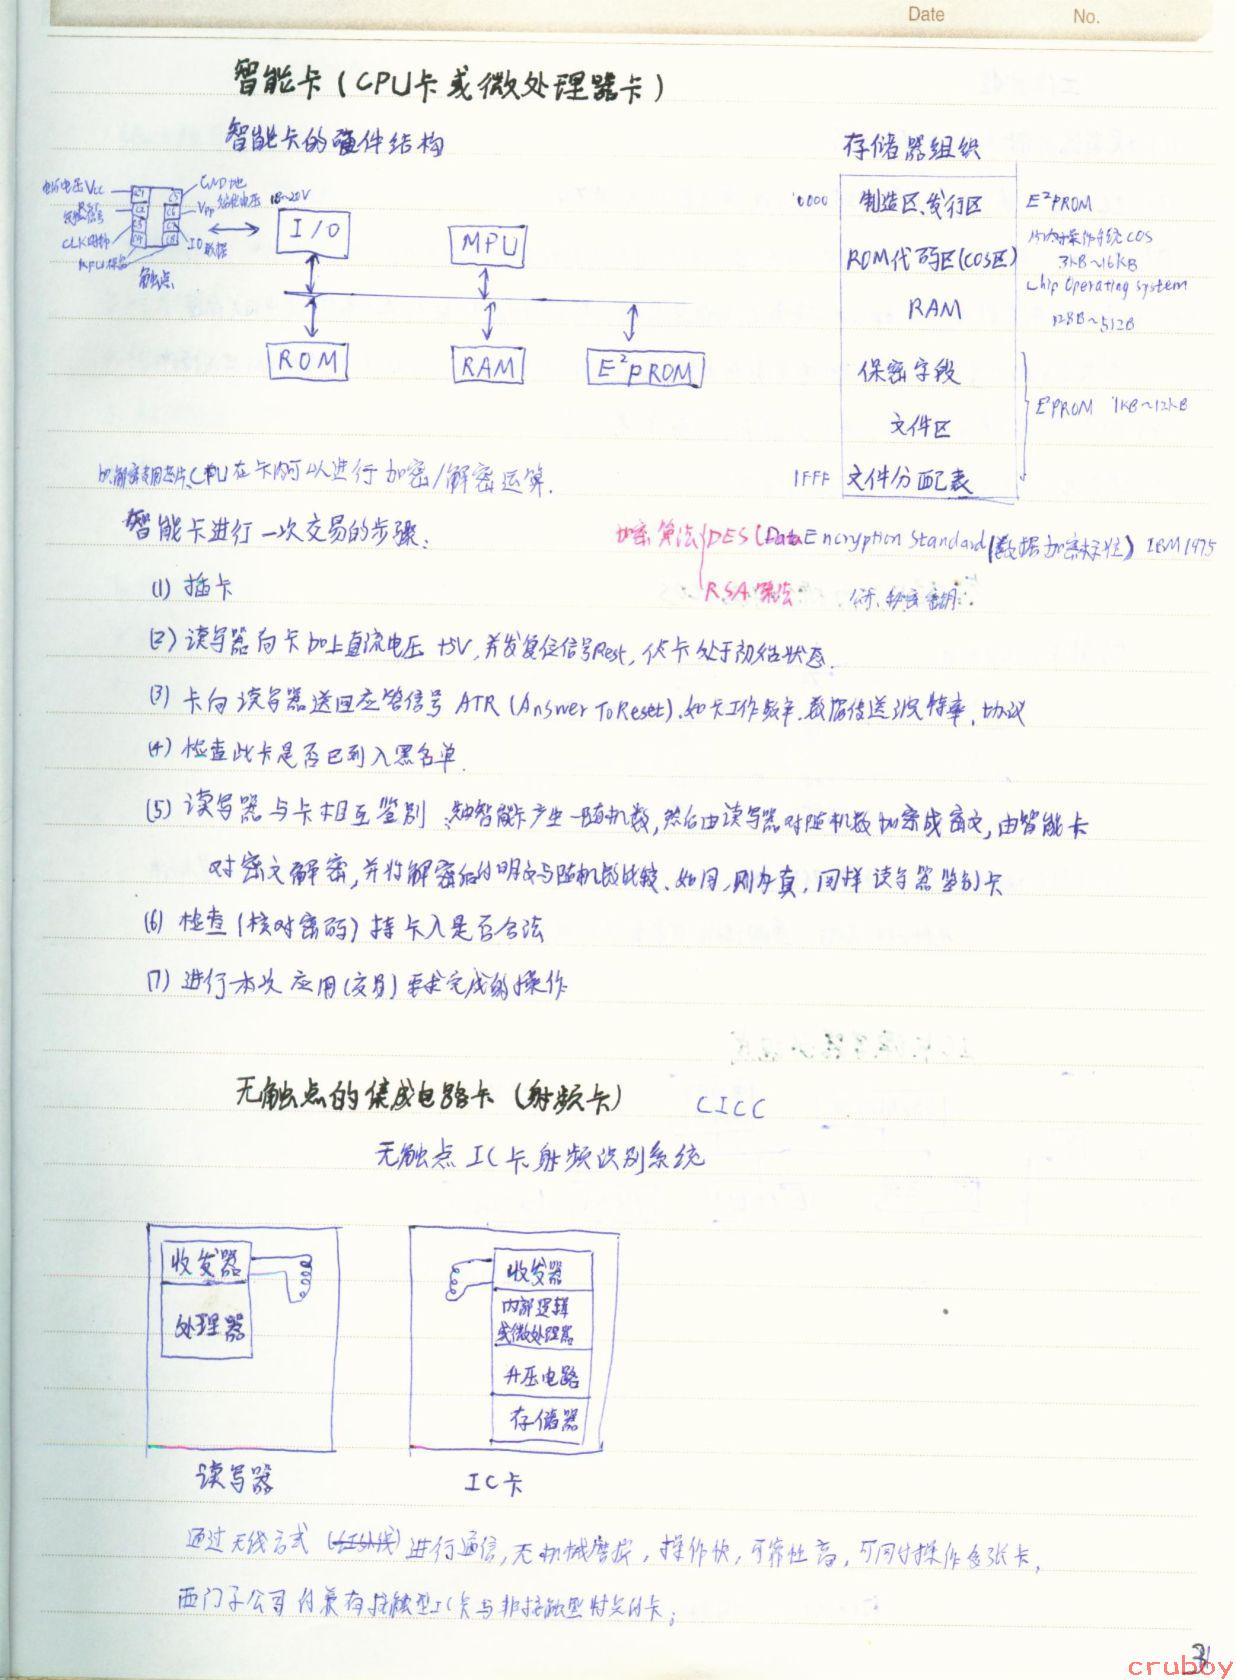 Date No.
智能卡(CPU卡或微处理器卡)
智能卡的硬件结构
存储器组织
电源电压Vcc
GND地
Vpp 编程电压 18~20V
CLK时钟
IO数据
触点
I/O
MPU
ROM
RAM
E²PROM
0000 制造区、发行区 E²PROM
ROM代码区(COS区) COS
3KB~16KB
Chip Operating System
RAM 128B~512B
保密字段
E²PROM 1KB~12KB
文件区
1FFF 文件分配表
加解密专用芯片、CPU在卡内可以进行加密/解密运算.
智能卡进行一次交易的步骤:
加密算法 DES (Data Encryption Standard (数据加密标准) IBM 1975
RSA算法 秘密密钥
(1) 插卡
(2) 读写器向卡加上直流电压 +5V,并发复位信号Rest,使卡处于初始状态.
(3) 卡向读写器送回应答信号 ATR (Answer To Reset).如卡工作频率.数据传送波特率,协议
(4) 检查此卡是否已列入黑名单.
(5) 读写器与卡相互鉴别 智能卡产生一随机数,然后由读写器对随机数加密成密文,由智能卡
对密文解密,并将解密后的明文与随机数比较、如同,则为真,同样读写器鉴别卡
(6) 检查(核对密码)持卡人是否合法
(7) 进行本次应用(交易)要求完成的操作
无触点的集成电路卡(射频卡) CICC
无触点IC卡射频识别系统
收发器
处理器
读写器
收发器
内部逻辑
或微处理器
升压电路
存储器
IC卡
通过无线方式(红外线)进行通信,无机械磨损,操作快,可靠性高,可同时操作多张卡,
西门子公司的兼有接触型IC卡与非接触型特点的卡;
3
cruboy